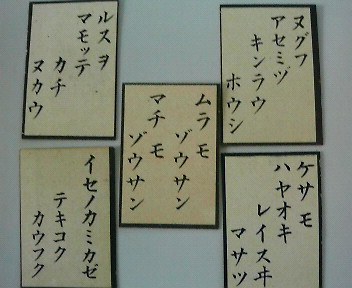 ルスヲ
マモッテ
カチ
ヌカウ
ヌグフ
アセミヅ
キンラウ
ホウシ
ムラモ
ゾウサン
マチモ
ゾウサン
イセノカミカゼ
テキコク
カウフク
ケサモ
ハヤオキ
レイスヰ
マサツ